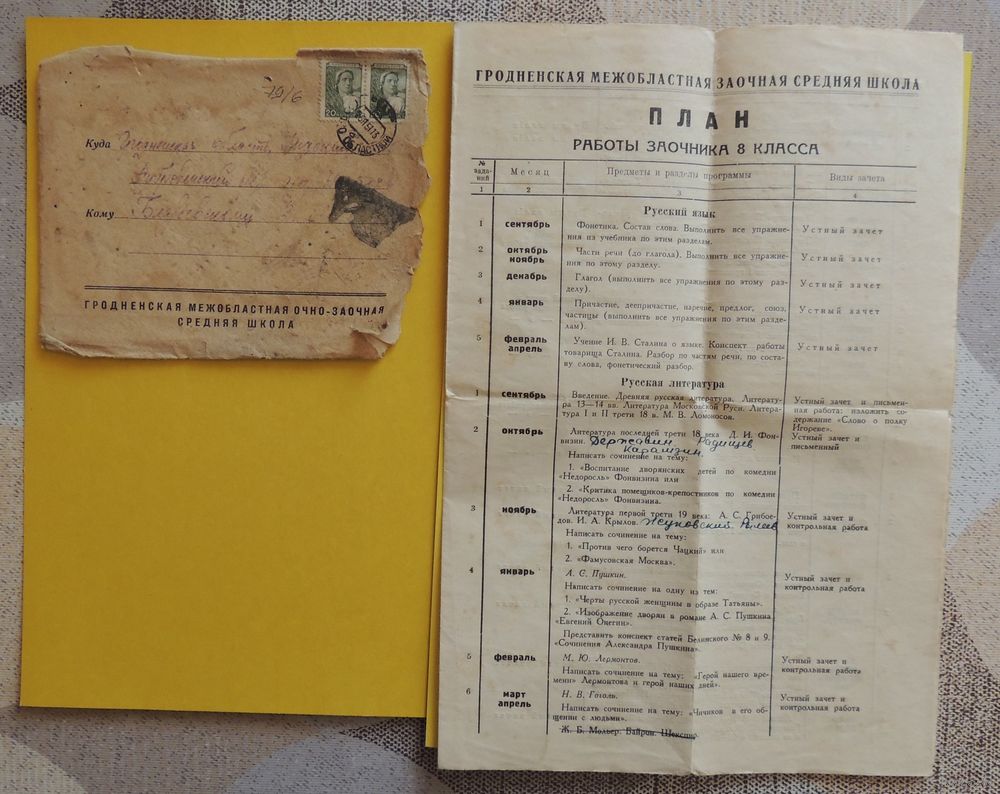 79/6
20
ОБЛАСТНОЙ
Куда
область,
Кому
ГРОДНЕНСКАЯ МЕЖОБЛАСТНАЯ ОЧНО-ЗАОЧНАЯ
СРЕДНЯЯ ШКОЛА
ГРОДНЕНСКАЯ МЕЖОБЛАСТНАЯ ЗАОЧНАЯ СРЕДНЯЯ ШКОЛА
ПЛАН
РАБОТЫ ЗАОЧНИКА 8 КЛАССА
№ зада-ний Месяц Предметы и разделы программы Виды зачета
1 2 3 4
Русский язык
1 сентябрь Фонетика. Состав слова. Выполнить все упражне- Устный зачет
ния из учебника по этим разделам.
2 октябрь Части речи (до глагола). Выполнить все упражне- Устный зачет
ноябрь ния по этому разделу.
3 декабрь Глагол (выполнить все упражнения по этому раз- Устный зачет
делу).
4 январь Причастие, деепричастие, наречие, предлог, союз, Устный зачет
частицы (выполнить все упражнения по этим разде-
лам).
5 февраль Учение И. В. Сталина о языке. Конспект работы Устный зачет
апрель товарища Сталина. Разбор по частям речи, по соста-
ву слова, фонетический разбор.
Русская литература
1 сентябрь Введение. Древняя русская литература. Литерату- Устный зачет и письмен-
ра 13—14 вв. Литература Московской Руси. Литера- ная работа: изложить со-
тура I и II трети 18 в. М. В. Ломоносов. держание «Слово о полку
Игореве».
2 октябрь Литература последней трети 18 века Д. И. Фон- Устный зачет и
визин. Державин, Радищев письменный
Карамзин.
Написать сочинение на тему:
1. «Воспитание дворянских детей по комедии
«Недоросль» Фонвизина или
2. «Критика помещиков-крепостников по комедии
«Недоросль» Фонвизина.
3 ноябрь Литература первой трети 19 века: А. С. Грибое- Устный зачет и
дов. И. А. Крылов. Жуковский, Рылеев контрольная работа
Написать сочинение на тему:
1. «Против чего борется Чацкий» или
2. «Фамусовская Москва».
4 январь А. С. Пушкин. Устный зачет и
Написать сочинение на одну из тем: контрольная работа
1. «Черты русской женщины в образе Татьяны».
2. «Изображение дворян в романе А. С. Пушкина
«Евгений Онегин».
Представить конспект статей Белинского № 8 и 9.
«Сочинения Александра Пушкина».
5 февраль М. Ю. Лермонтов. Устный зачет и
Написать сочинение на тему: «Герой нашего вре- контрольная работа
мени» Лермонтова и герой наших дней».
6 март Н. В. Гоголь. Устный зачет и
апрель Написать сочинение на тему: «Чичиков в его об- контрольная работа
щении с людьми».
Ж. Б. Мольер. Байрон. Шекспир.